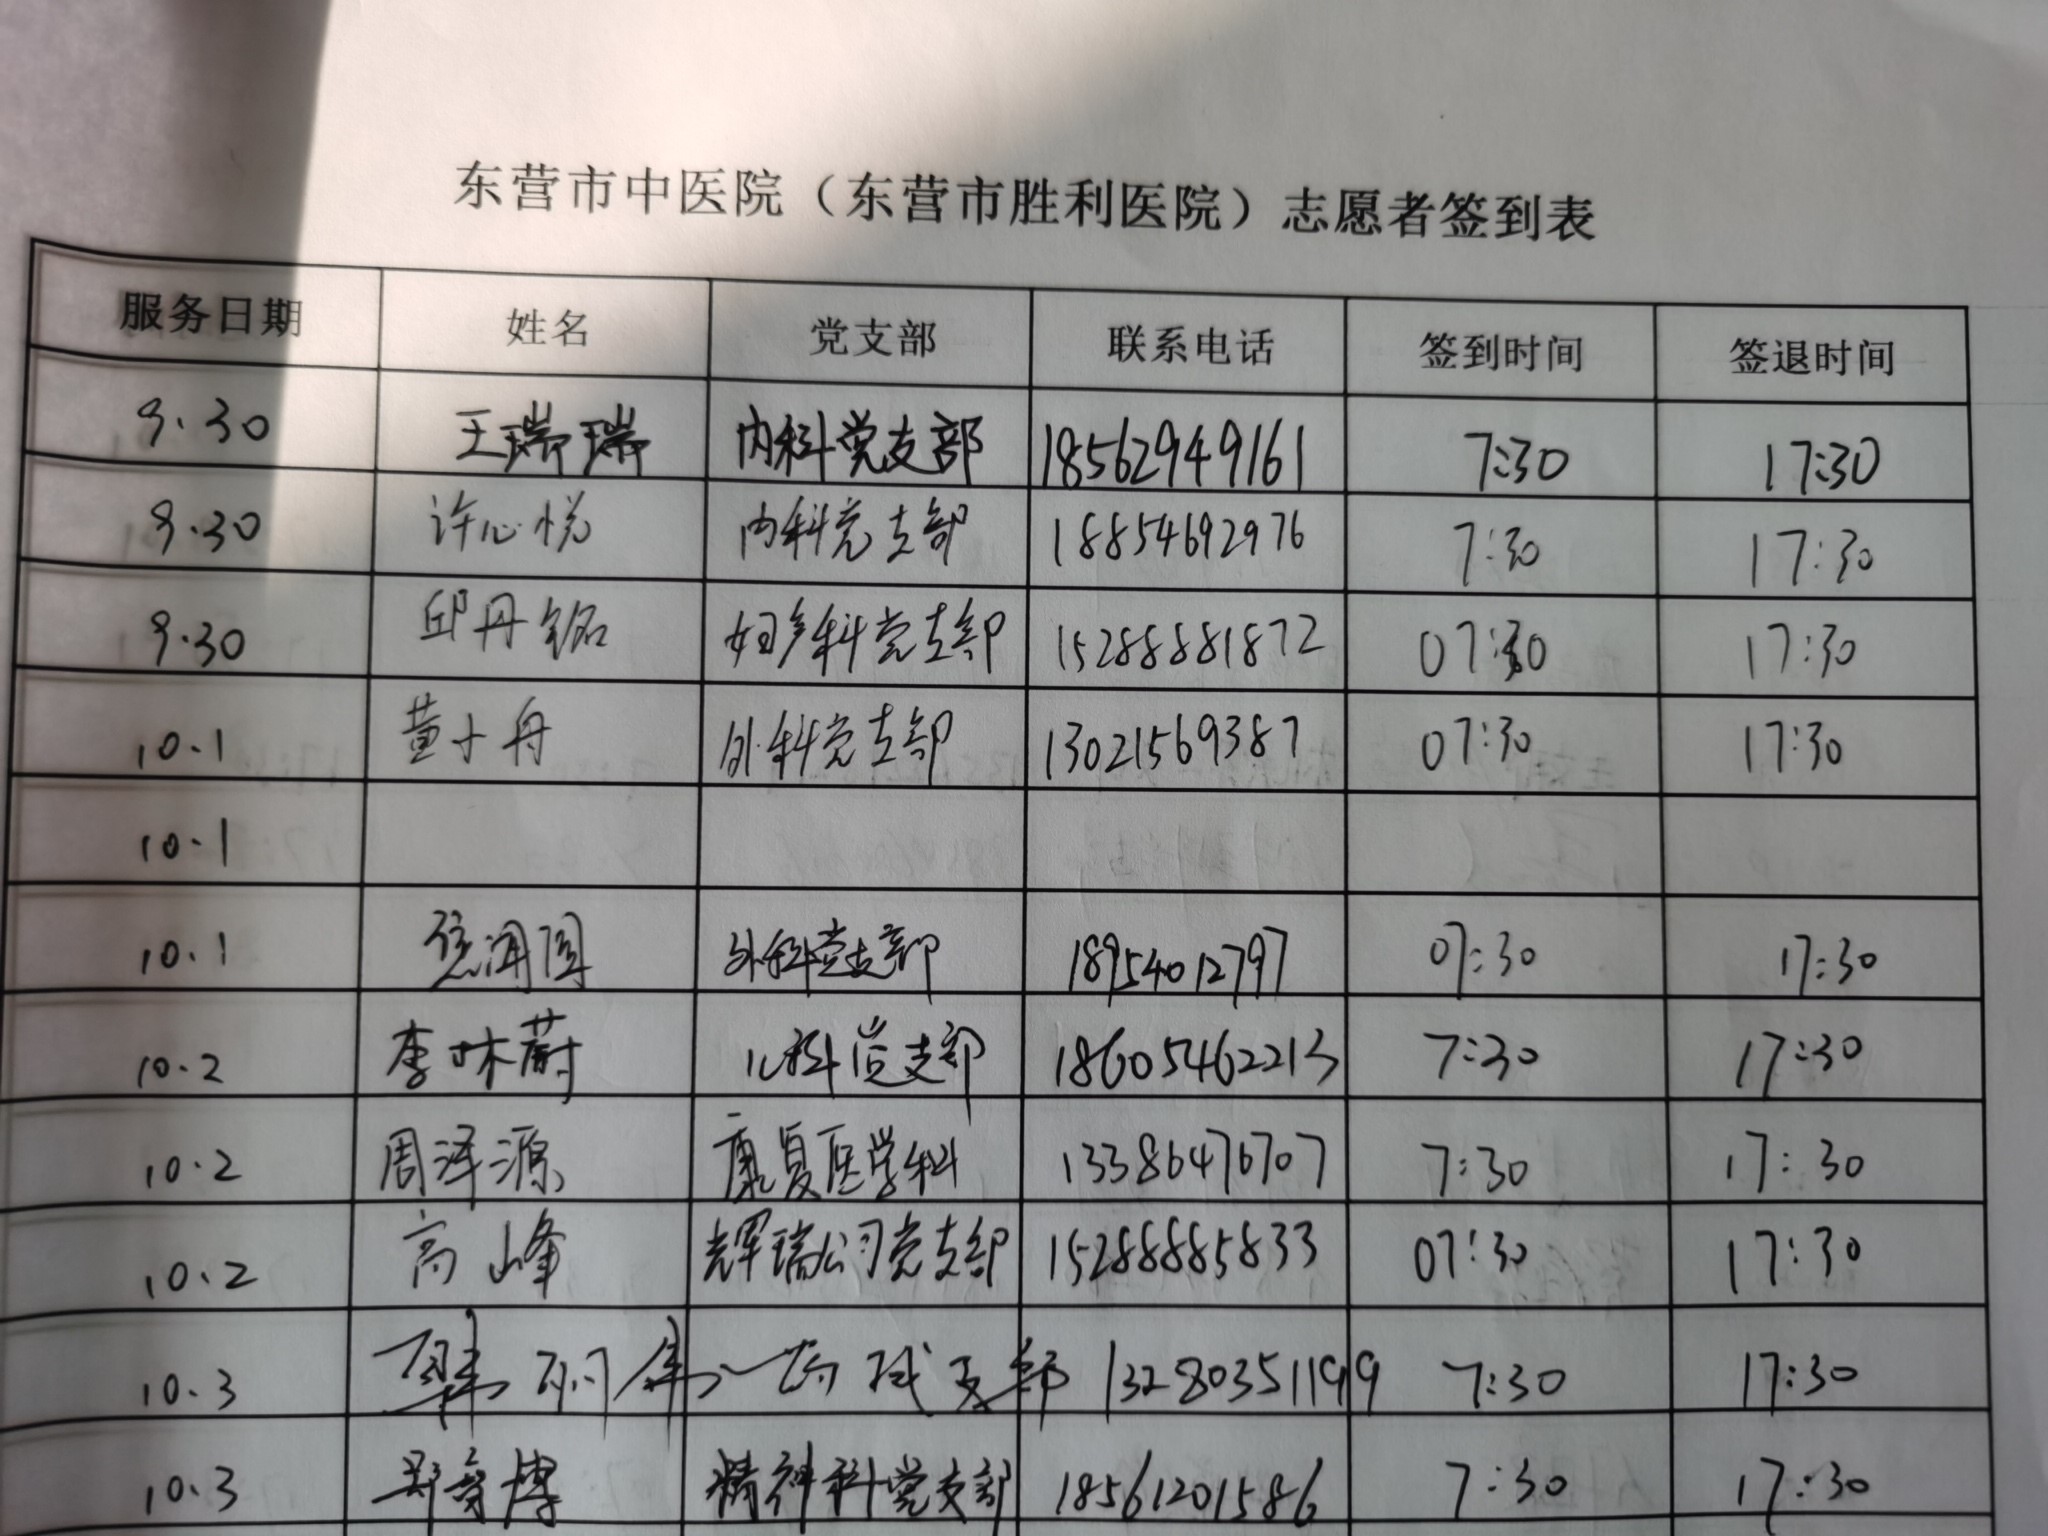 东营市中医院（东营市胜利医院）志愿者签到表
服务日期 姓名 党支部 联系电话 签到时间 签退时间
9.30 王瑞瑞 内科党支部 18562949161 7:30 17:30
9.30 许心悦 内科党支部 18854692976 7:30 17:30
9.30 邱丹铭 妇产科党支部 15288881872 07:30 17:30
10.1 黄小舟 外科党支部 13021569387 07:30 17:30
10.1
10.1 外科党支部 18954012797 07:30 17:30
10.2 李林蔚 儿科党支部 18605462213 7:30 17:30
10.2 周泽源 康复医学科 13386476707 7:30 17:30
10.2 高峰 辉瑞公司党支部 15288885833 07:30 17:30
10.3 支部 13280351199 7:30 17:30
10.3 博 精神科党支部 18561201586 7:30 17:30